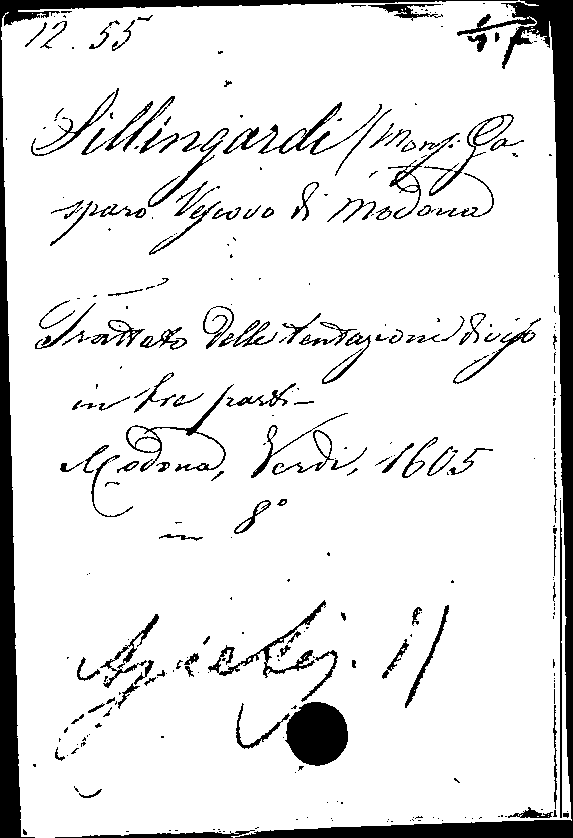 12. 55
Sillingardi / Mons. Ga-
sparo Vescovo di Modona
Trattato delle tentazioni diviso
in tre parti -
Modona, Verdi, 1605
in 8°